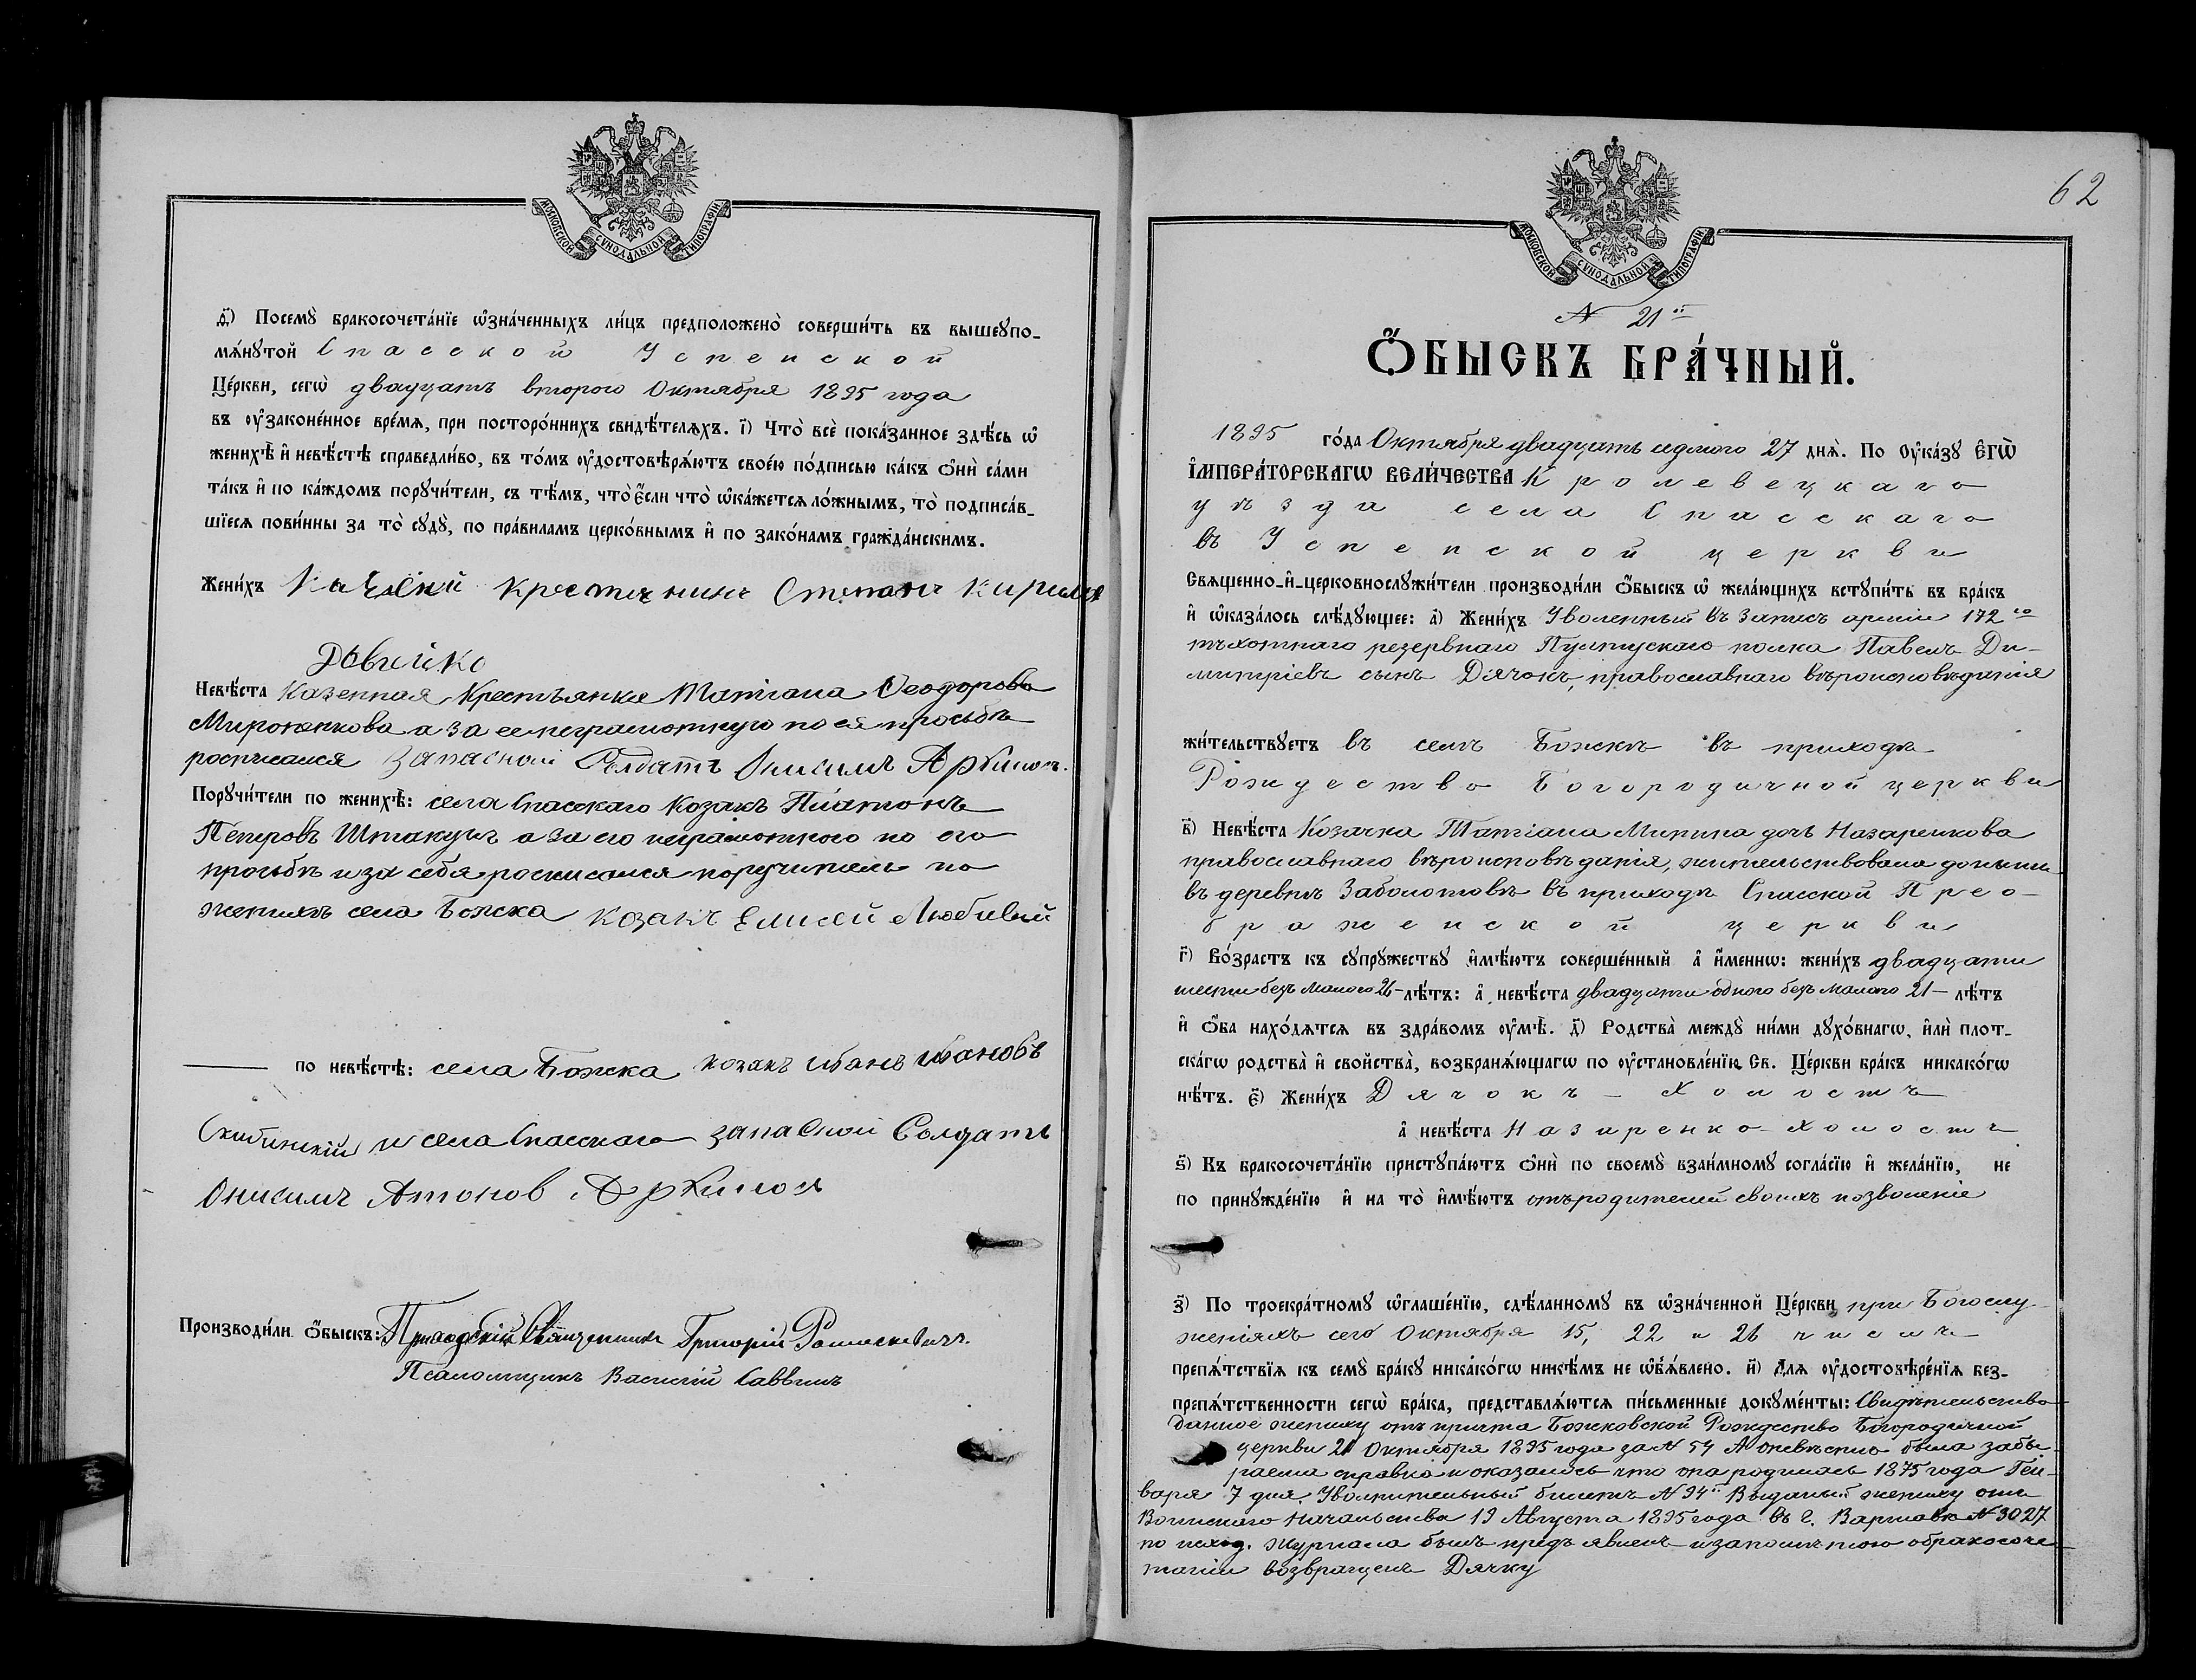 МОСКОВСКОЙ СѴНОДАЛЬНОЙ ТИПОГРАФІИ
ѳ҃) Посемꙋ̀ бракосочета́нїе ѡ҆зна́ченныхъ ли́цъ предположено̀ соверши́ть въ вышеꙋпо-
мѧ́нꙋтой Спасской Успенской
Це́ркви, сегѡ̀ двадцать второго Октября 1895 года
въ ᲂу҆законе́нное вре́мѧ, при посторо́ннихъ свидѣ́телѧхъ. і҃) Что̀ всѐ пока́занное здѣ́сь ѡ҆
женихѣ̀ и҆ невѣ́стѣ справедли́во, въ то́мъ ᲂу҆достовѣрѧ́ютъ свое́ю по́дписью ка́къ ѻ҆нѝ са́ми
та́къ и҆ по ка́ждомъ порꙋчи́тели, съ тѣ́мъ, что̀ є҆́сли что̀ ѡ҆ка́жетсѧ ло́жнымъ, то̀ подписа́в-
шїесѧ пови́нны за то̀ сꙋдꙋ̀, по пра́виламъ церко́внымъ и҆ по зако́намъ гражда́нскимъ.
Жени́хъ крестянинъ Степанъ
Невѣ́ста Казенная Крестьянка Татіана Ѳеодорова
Миронякова а за ее неграмотную по ея просьбѣ
росписался Запасной Солдатъ Онисимъ
Порꙋчи́тели по женихѣ̀: села Спасскаго Козакъ Платонъ
Петровъ а за его неграмотного по его
просьбѣ и за себя росписался поручитель по
женихѣ села Божка козакъ Елисей Любивый
по невѣ́стѣ: села Божка козакъ Иванъ Ивановъ
Скибинскій и села Спасскаго запасной Солдатъ
Онисимъ Антонов
Производи́ли ѻ҆́быскъ: Приходскій Священникъ Григорій Ромаскевичъ.
Псаломщикъ Василій Саввичъ
62
МОСКОВСКОЙ СѴНОДАЛЬНОЙ ТИПОГРАФІИ
N 21й
Ѻ҆́БЫСКЪ БРА́ЧНЫЙ.
1895 го́да Октября двадцать седмого 27 днѧ̀. По Оу҆ка́зꙋ Є҆гѡ̀
І҆мпера́торскагѡ Вели́чества Кролевецкаго
уѣзда села Спасскаго
въ Успенской церкви
Свѧщенно-и҆-церковнослꙋжи́тели производи́ли ѻ҆́быскъ ѡ҆ жела́ющихъ встꙋпи́ть въ бра́къ
и҆ ѡ҆каза́лось слѣ́дꙋющее: а҃) Жени́хъ Уволенный въ Запасъ арміи 172го
пѣхотнаго резервнаго Пултускаго полка Павелъ Ди-
митріевъ сынъ Дячокъ, православнаго вѣроисповѣданія
жи́тельствꙋетъ въ селѣ Божкѣ въ приходѣ
Рождество Богородичной церкви
в҃) Невѣ́ста Козачка Татіана Минина дочь Назаренкова
православнаго вѣроисповѣданія, жительствовала донынѣ
въ деревнѣ Заболотовѣ въ приходѣ Спасской Прео-
браженской церкви
г҃) Во́зрастъ къ сꙋпрꙋ́жествꙋ и҆мѣ́ютъ соверше́нный а҆ и҆́меннѡ: жени́хъ двадцати
шести безъ малого 26- лѣ́тъ: а҆ невѣ́ста двадцати одного безъ малого 21- лѣ́тъ
и҆ ѻ҆́ба нахо́дѧтсѧ въ здра́вомъ ᲂу҆мѣ̀. д҃) Родства̀ междꙋ̀ ни́ми дꙋхо́внагѡ, и҆лѝ плот-
ска́гѡ родства̀ и҆ свойства̀, возбранѧ́ющагѡ по ᲂу҆становле́нїю Св. Це́ркви бра́къ никако́гѡ
нѣ́тъ. є҃) Жени́хъ Дячокъ - Холостъ
а҆ невѣ́ста Назаренко - Холостъ
ѕ҃) Къ бракосочета́нїю пристꙋпа́ютъ ѻ҆нѝ по своемꙋ̀ взаи́мномꙋ согла́сїю и҆ жела́нїю, не
по принꙋжде́нїю и҆ на то̀ и҆мѣ́ютъ отъ родителей своихъ позволеніе
з҃) По троекра́тномꙋ ѡ҆глаше́нїю, сдѣ́ланномꙋ въ ѡ҆зна́ченной Це́ркви при Богослу-
женіяхъ сего Октября 15, 22 и 26 числъ
препѧ́тствїѧ къ семꙋ̀ бра́кꙋ никако́гѡ никѣ́мъ не ѡ҆б̾ѧ́влено. и҃) Длѧ ᲂу҆достовѣре́нїѧ без-
препѧ́тственности сегѡ̀ бра́ка, представлѧ́ютсѧ пи́сьменные докꙋме́нты: Свидѣтельство
данное жениху отъ причта Божковской Рождество Богородичной
церкви 21 Октября 1895 года за N 54 А о невѣстѣ была забы-
раема справка и оказалось что она родилась 1875 года Ген-
варя 7 дня. Уволнительный билетъ N 94й Выданый жениху отъ
Воинскаго Начальства 19 Августа 1895 года въ г. Варшавѣ N 3027
по исход. журнала былъ предъявленъ и запомѣткою о бракосоче-
таніи возвращенъ Дячку